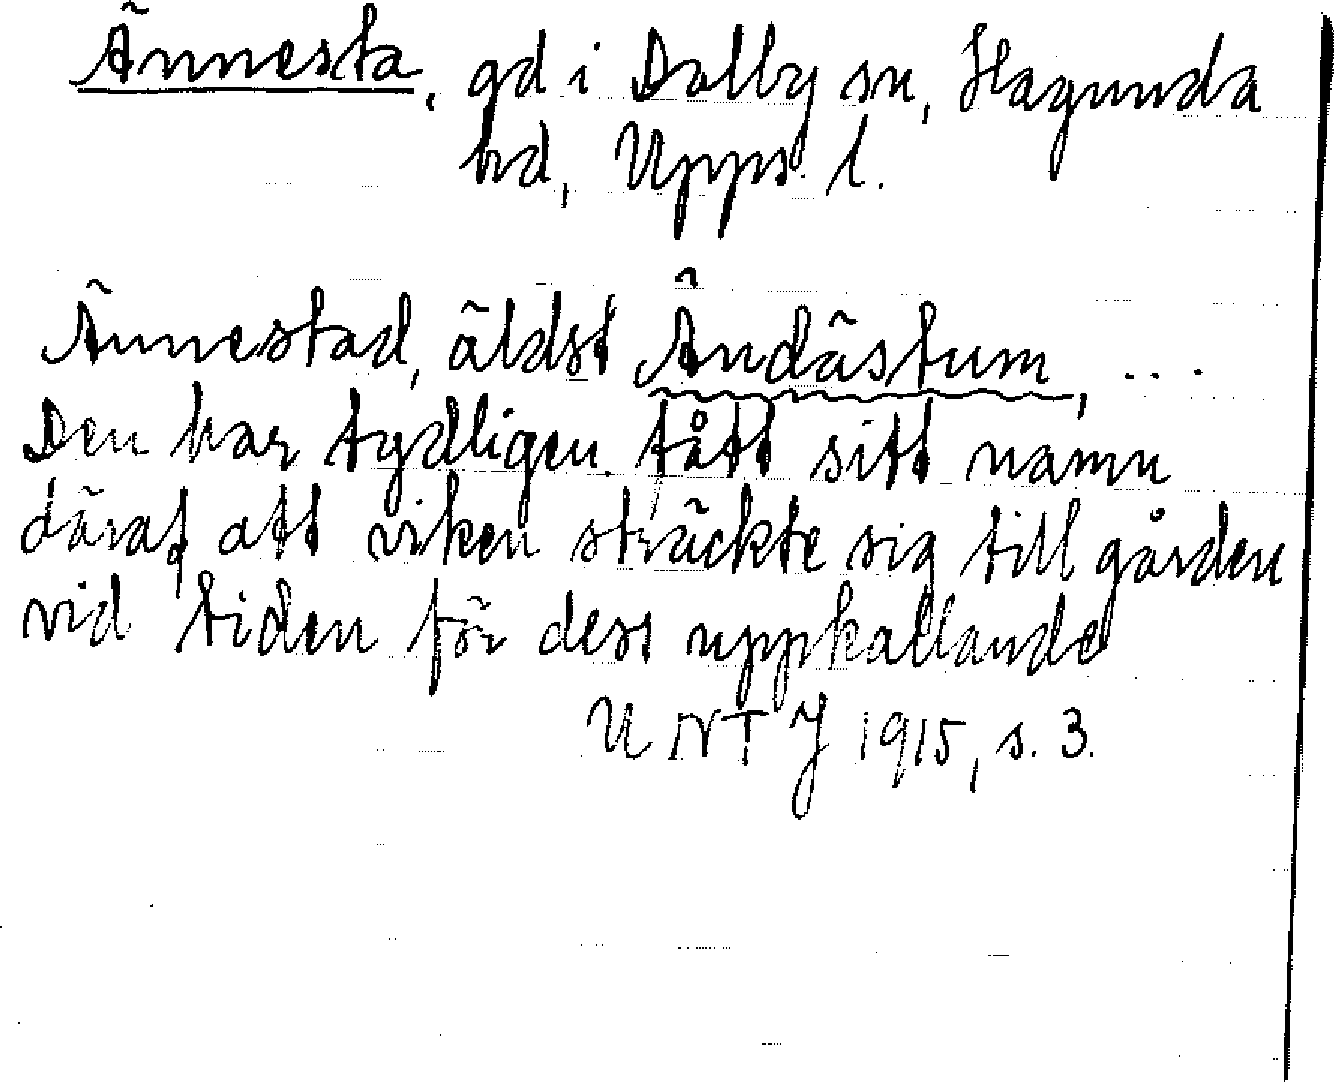 Ännesta, gd i Dalby sn, Hagunda
hd, Upps. l.
Ännestad, äldst Ändästum, ...
Den har tydligen fått sitt namn
däraf att viken sträckte sig till gården
vid tiden för dess uppkallande
UNTJ 1915, s. 3.